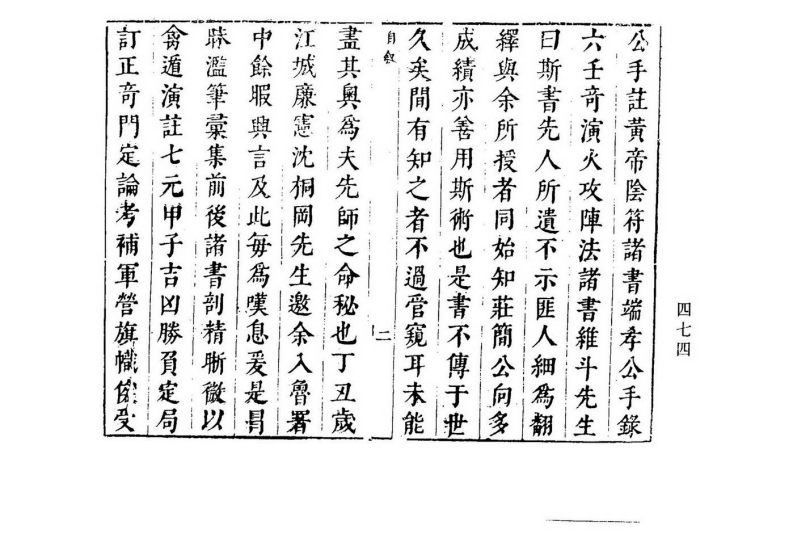 公手註黃帝陰符諸書端孝公手錄
六壬奇演火攻陣法諸書維斗先生
曰斯書先人所遺不示匪人細為翻
繹與余所授者同始知莊簡公向多
成績亦善用斯術也是書不傳于世
久矣間有知之者不過管窺耳未能
自敘
二
盡其奧為夫先師之命秘也丁丑歲
江城廉憲沈桐岡先生邀余入魯署
中餘暇興言及此每為嘆息爰是冒
昧濫筆彙集前後諸書剖精晰微以
禽遁演註七元甲子吉凶勝負定局
訂正奇門定論考補軍營旗幟
受
四七四